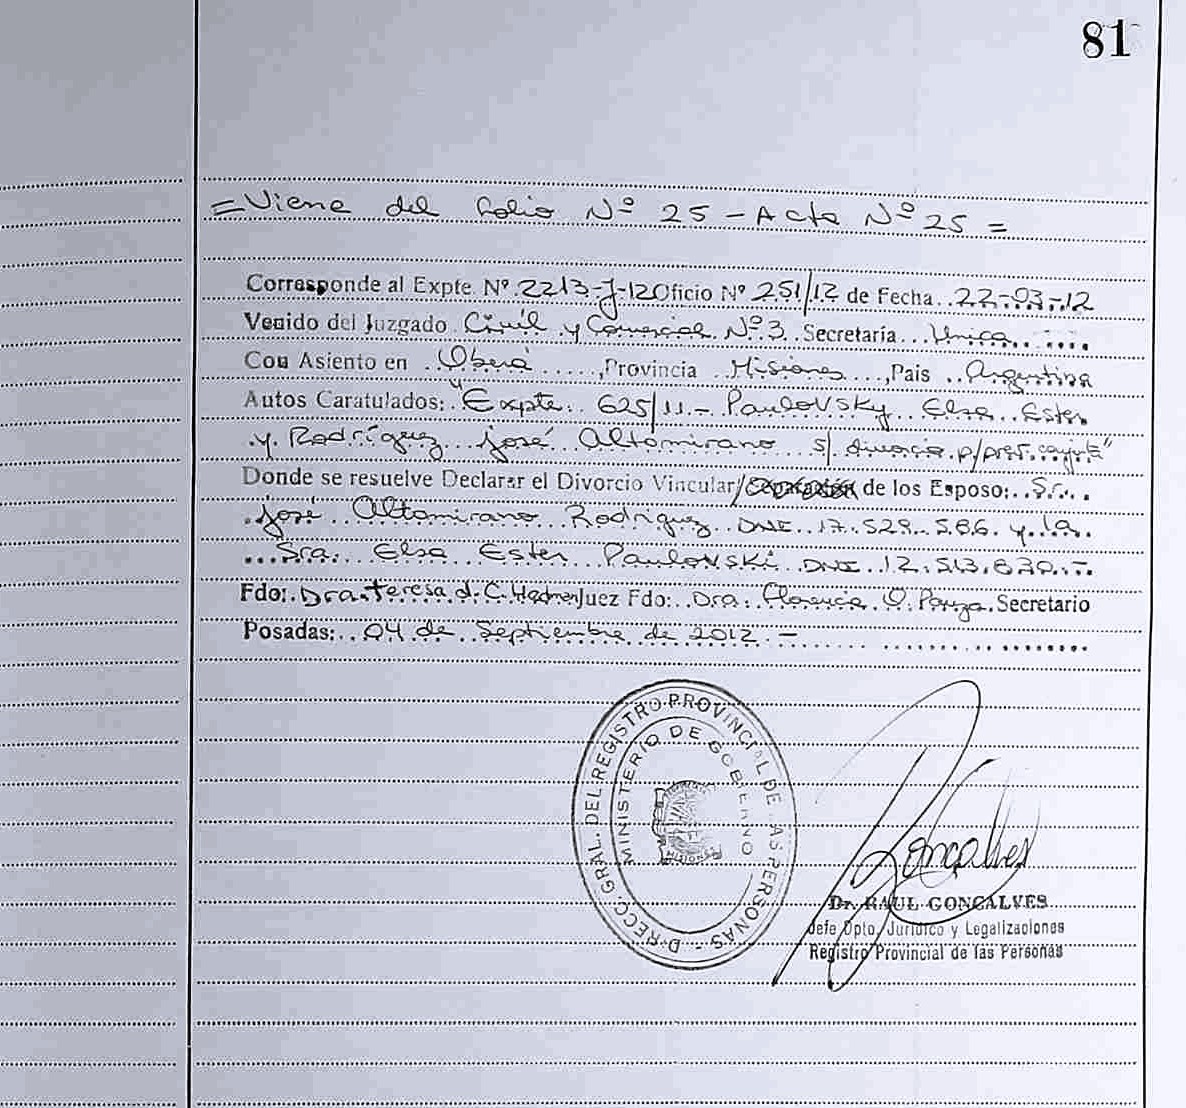 81
= Viene del folio Nº 25 - Acta Nº 25 =
Corresponde al Expte. Nº 2213-J-12 Oficio Nº 251/12 de Fecha 22-03-12
Venido del Juzgado Civil y Comercial Nº 3 Secretaría Unica
Con Asiento en Oberá, Provincia Misiones, Pais Argentina
Autos Caratulados: "Expte. 625/11.- Paulovsky Elsa Ester
y Rodríguez José Altamirano s/ divorcio p/pres. conjta"
Donde se resuelve Declarar el Divorcio Vincular/ de los Esposo: Sr.
José Altamirano Rodriguez DNI 17.529.586 y la
Sra. Elsa Ester Paulovski DNI 12.513.630.-
Fdo: Dra. Teresa d. C. Juez Fdo: Dra. Florencia Secretario
Posadas: 04 de Septiembre de 2012.-
D·RECC. GRAL. DEL REGISTRO PROVINCIAL DE LAS PERSONAS -
MINISTERIO DE GOBIERNO
MISIONES
Goncalves
Dr. RAUL GONCALVES
Jefe Dpto. Jurídico y Legalizaciones
Registro Provincial de las Personas